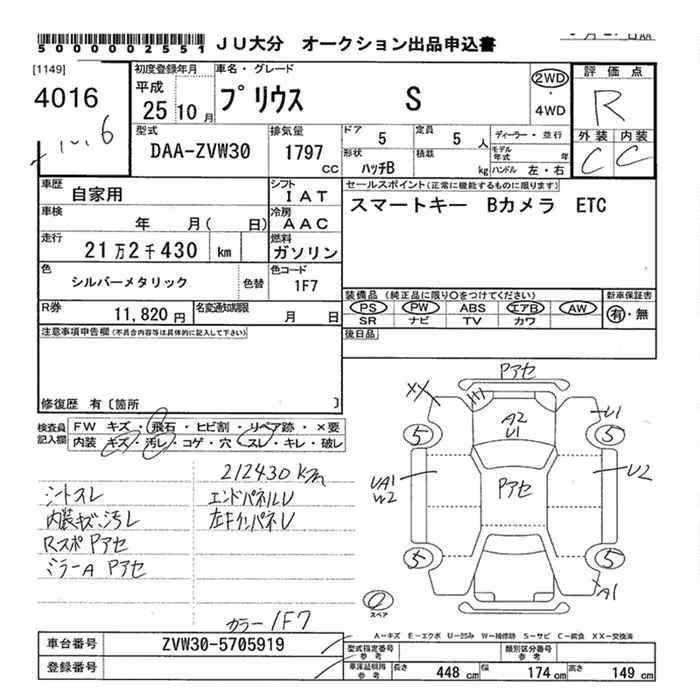 5000002551 JU大分 オークション出品申込書
[1149] 4016
初度登録年月 平成 25 10月
車名・グレード プリウス S
2WD・4WD
評価点 R
外装 内装 C C
型式 DAA-ZVW30
排気量 1797 cc
ドア 5 定員 5人
形状 ハッチB 積載 kg
ディーラー・並行
モデル年式 年
ハンドル 左・右
車歴 自家用
シフト IAT
車検 年 月( 日)
冷房 AAC
走行 21万2千430 km
燃料 ガソリン
色 シルバーメタリック 色替
色コード 1F7
R券 11,820円 名変通知期限 月 日
セールスポイント(正常に機能するものに限ります)
スマートキー Bカメラ ETC
装備品(純正品に限り○をつけてください) 新車保証書
PS PW ABS エアB AW 有・無
SR ナビ TV カワ
後日品
注意事項申告欄(不具合内容等は具体的に記入して下さい)
修復歴 有〔箇所 〕
検査員記入欄
FW キズ・飛石・ヒビ割・リペア跡・×要
内装 キズ・汚レ・コゲ・穴・スレ・キレ・破レ
212430 km
シートスレ エンドパネルU
内装キズ、汚レ 左FインパネU
Rスポ Pアセ
ミラーA Pアセ
カラー 1F7
Pアセ
XX
A2
U1
U1
5 5
UA1
W2
Pアセ
U2
5 5
A1
スペア
A-キズ E-エクボ U-凹み W-補修跡 S-サビ C-腐食 XX-交換済
車台番号 ZVW30-5705919
登録番号
型式指定番号 参考
類別区分番号 参考
車深証明用 参考 長さ 448 cm 幅 174 cm 高さ 149 cm